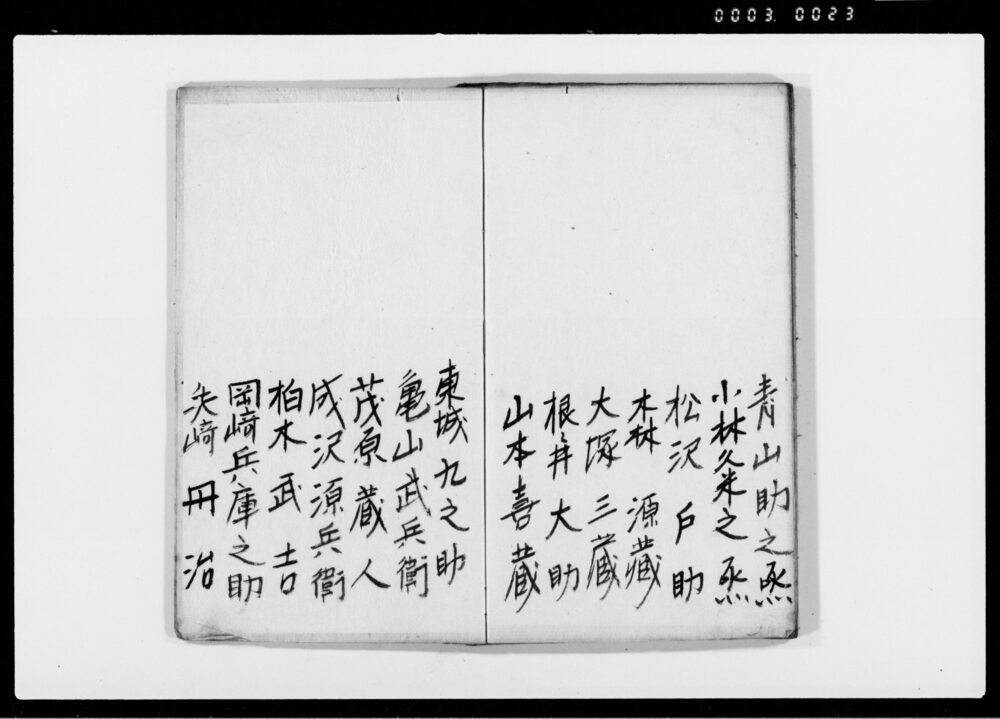 0003. 0023
青山助之烝
小林久米之烝
松沢戸助
森源蔵
大塚三蔵
根々井大助
山本喜蔵
東城九之助
亀山武兵衛
茂原蔵人
成沢源兵衛
柏木武吉
岡﨑兵庫之助
矢﨑丹治